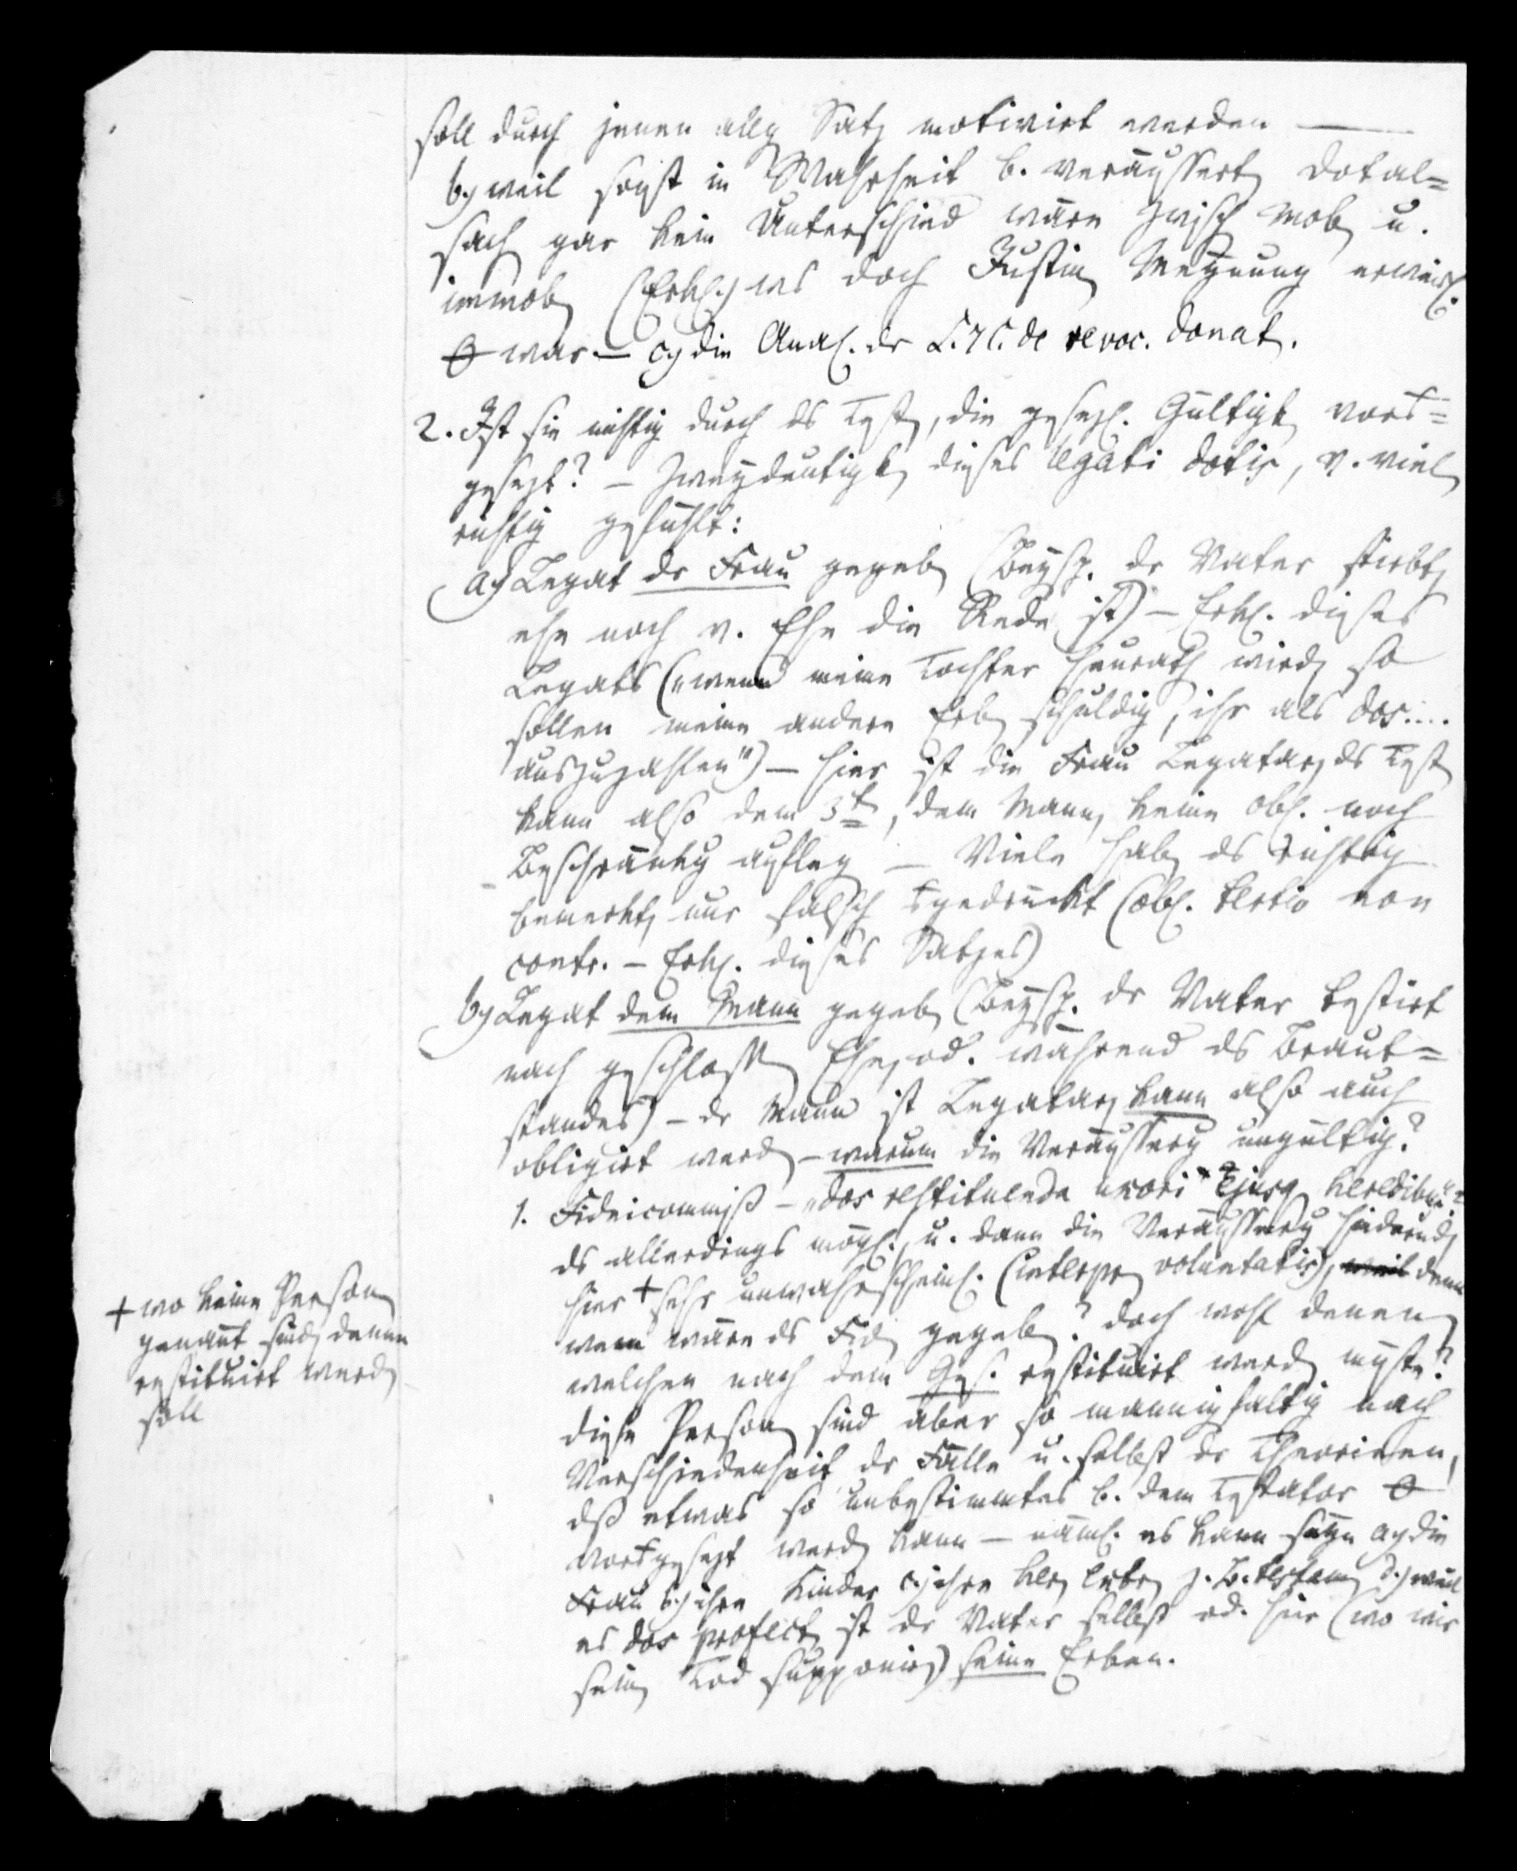 soll durch jenen allg Satz motivirt werden —
b.) weil sonst in Wahrheit b. veräussert Dotal=
sach gar kein Unterschied wäre zwisch mob u.
immob (Erkl.) ws doch Justin Meynung erweisl.
war — c.) die Anal. der L. 7 C. de revoc. donat.
2. Ist sie nichtig durch ds Test, die gesezl. Gültigk vor=
gesezt? — Zweydeutigk dieses legati dotis, v. viel
richtig gefühlt:
a.) Legat dr Frau gegeb (Beysp. dr Vater stirbt,
ehe noch v. Ehe die Rede ist) — Erkl. dieses
Legats („wenn meine Tochter heurath wird, so
sollen meine andere Erb schuldig, ihr als dos....
auszuzahlen") — hier ist die Frau Legatar, ds Test
kann also dem 3t, dem Mann, keine obl. noch
Beschränkg aufleg — Viele hab ds richtig
bemerkt, nur falsch gedruckt (obl. tertio non
contr. — Erkl. dieses Satzes)
b.) Legat dem Mann gegeb (Beysp. dr Vater testirt
nach geschloss Ehe, od. während ds Braut=
standes) — dr Mann ist Legatar, kann also auch
obligirt werd — warum die Veräusserg ungültig?
1. Fideicommiß — „dos restituenda uxori ejusq heredibus"
ds allerdings mögl., u. dann die Veräusserg hindernd,
hier + sehr unwahrscheinl. (interpr voluntatis), weil denn
wem wäre ds Fid gegeb? doch wohl denen,
welchen nach dem Ges. restituirt werd müste?
diese Person sind aber so mannigfaltig nach
Verschiedenheit dr Fälle u. selbst dr Theorieen,
dß etwas so unbestimmtes b. dem Testator
vorgesezt werd kann — näml. es kann seyn a.) die
Frau b.) ihre Kinder c.) ihre her extr z. B. testam d.) weil
es dos profect ist dr Vater selbst od. hier (wo wir
sein Tod supponir) seine Erben.
+ wo keine Person
genannt sind, denen
restituirt werd
soll